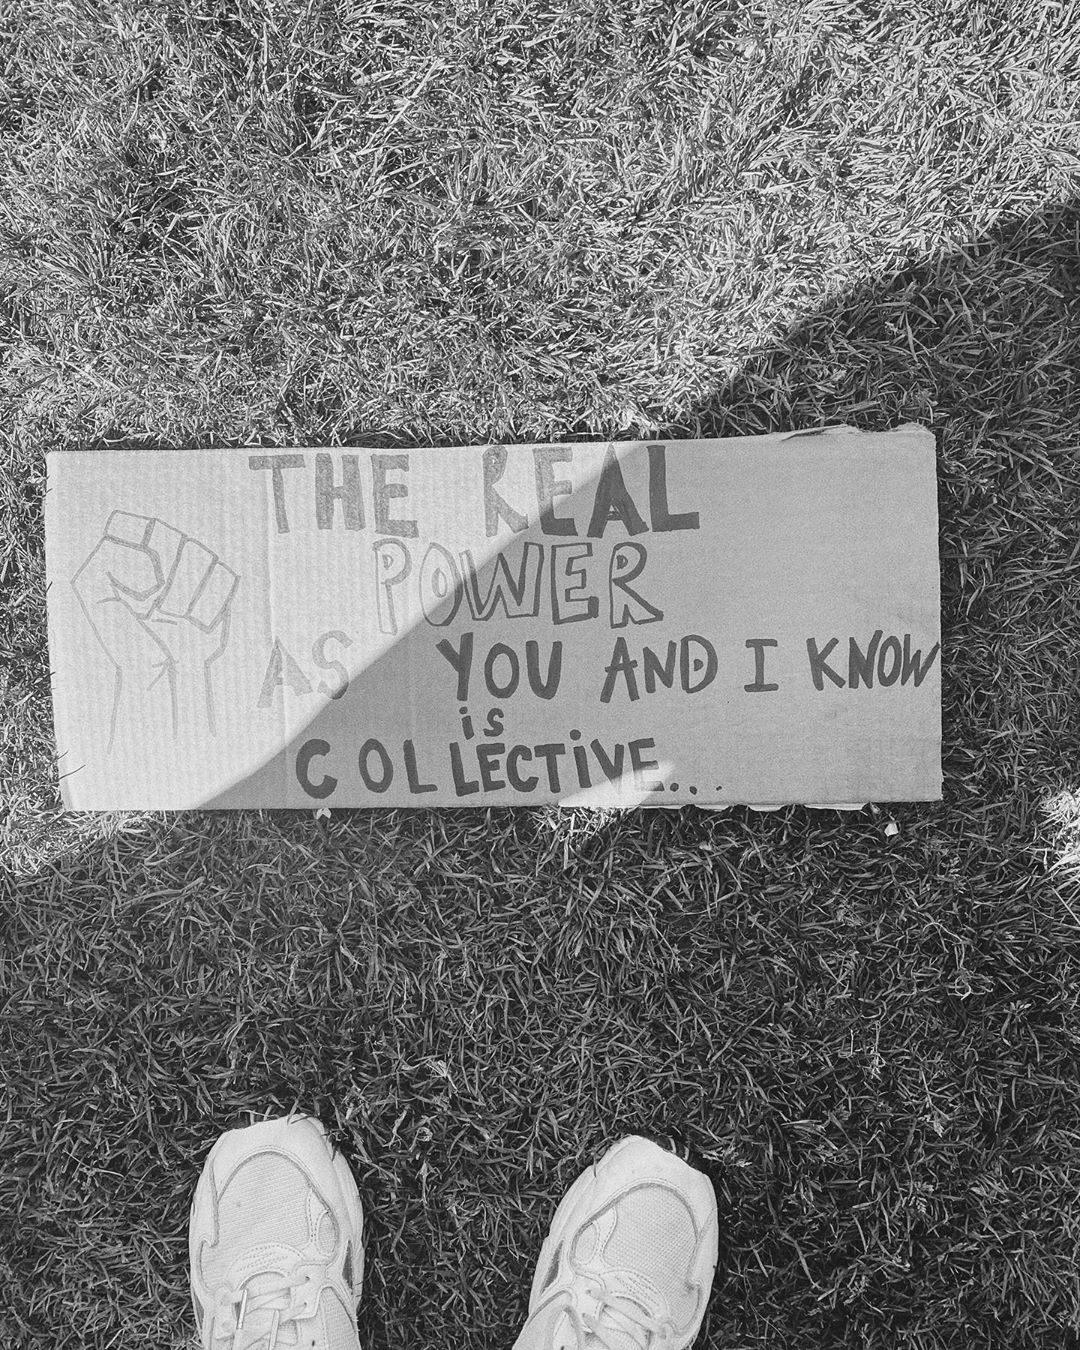 THE REAL
POWER
AS YOU AND I KNOW
is
COLLECTiVE...